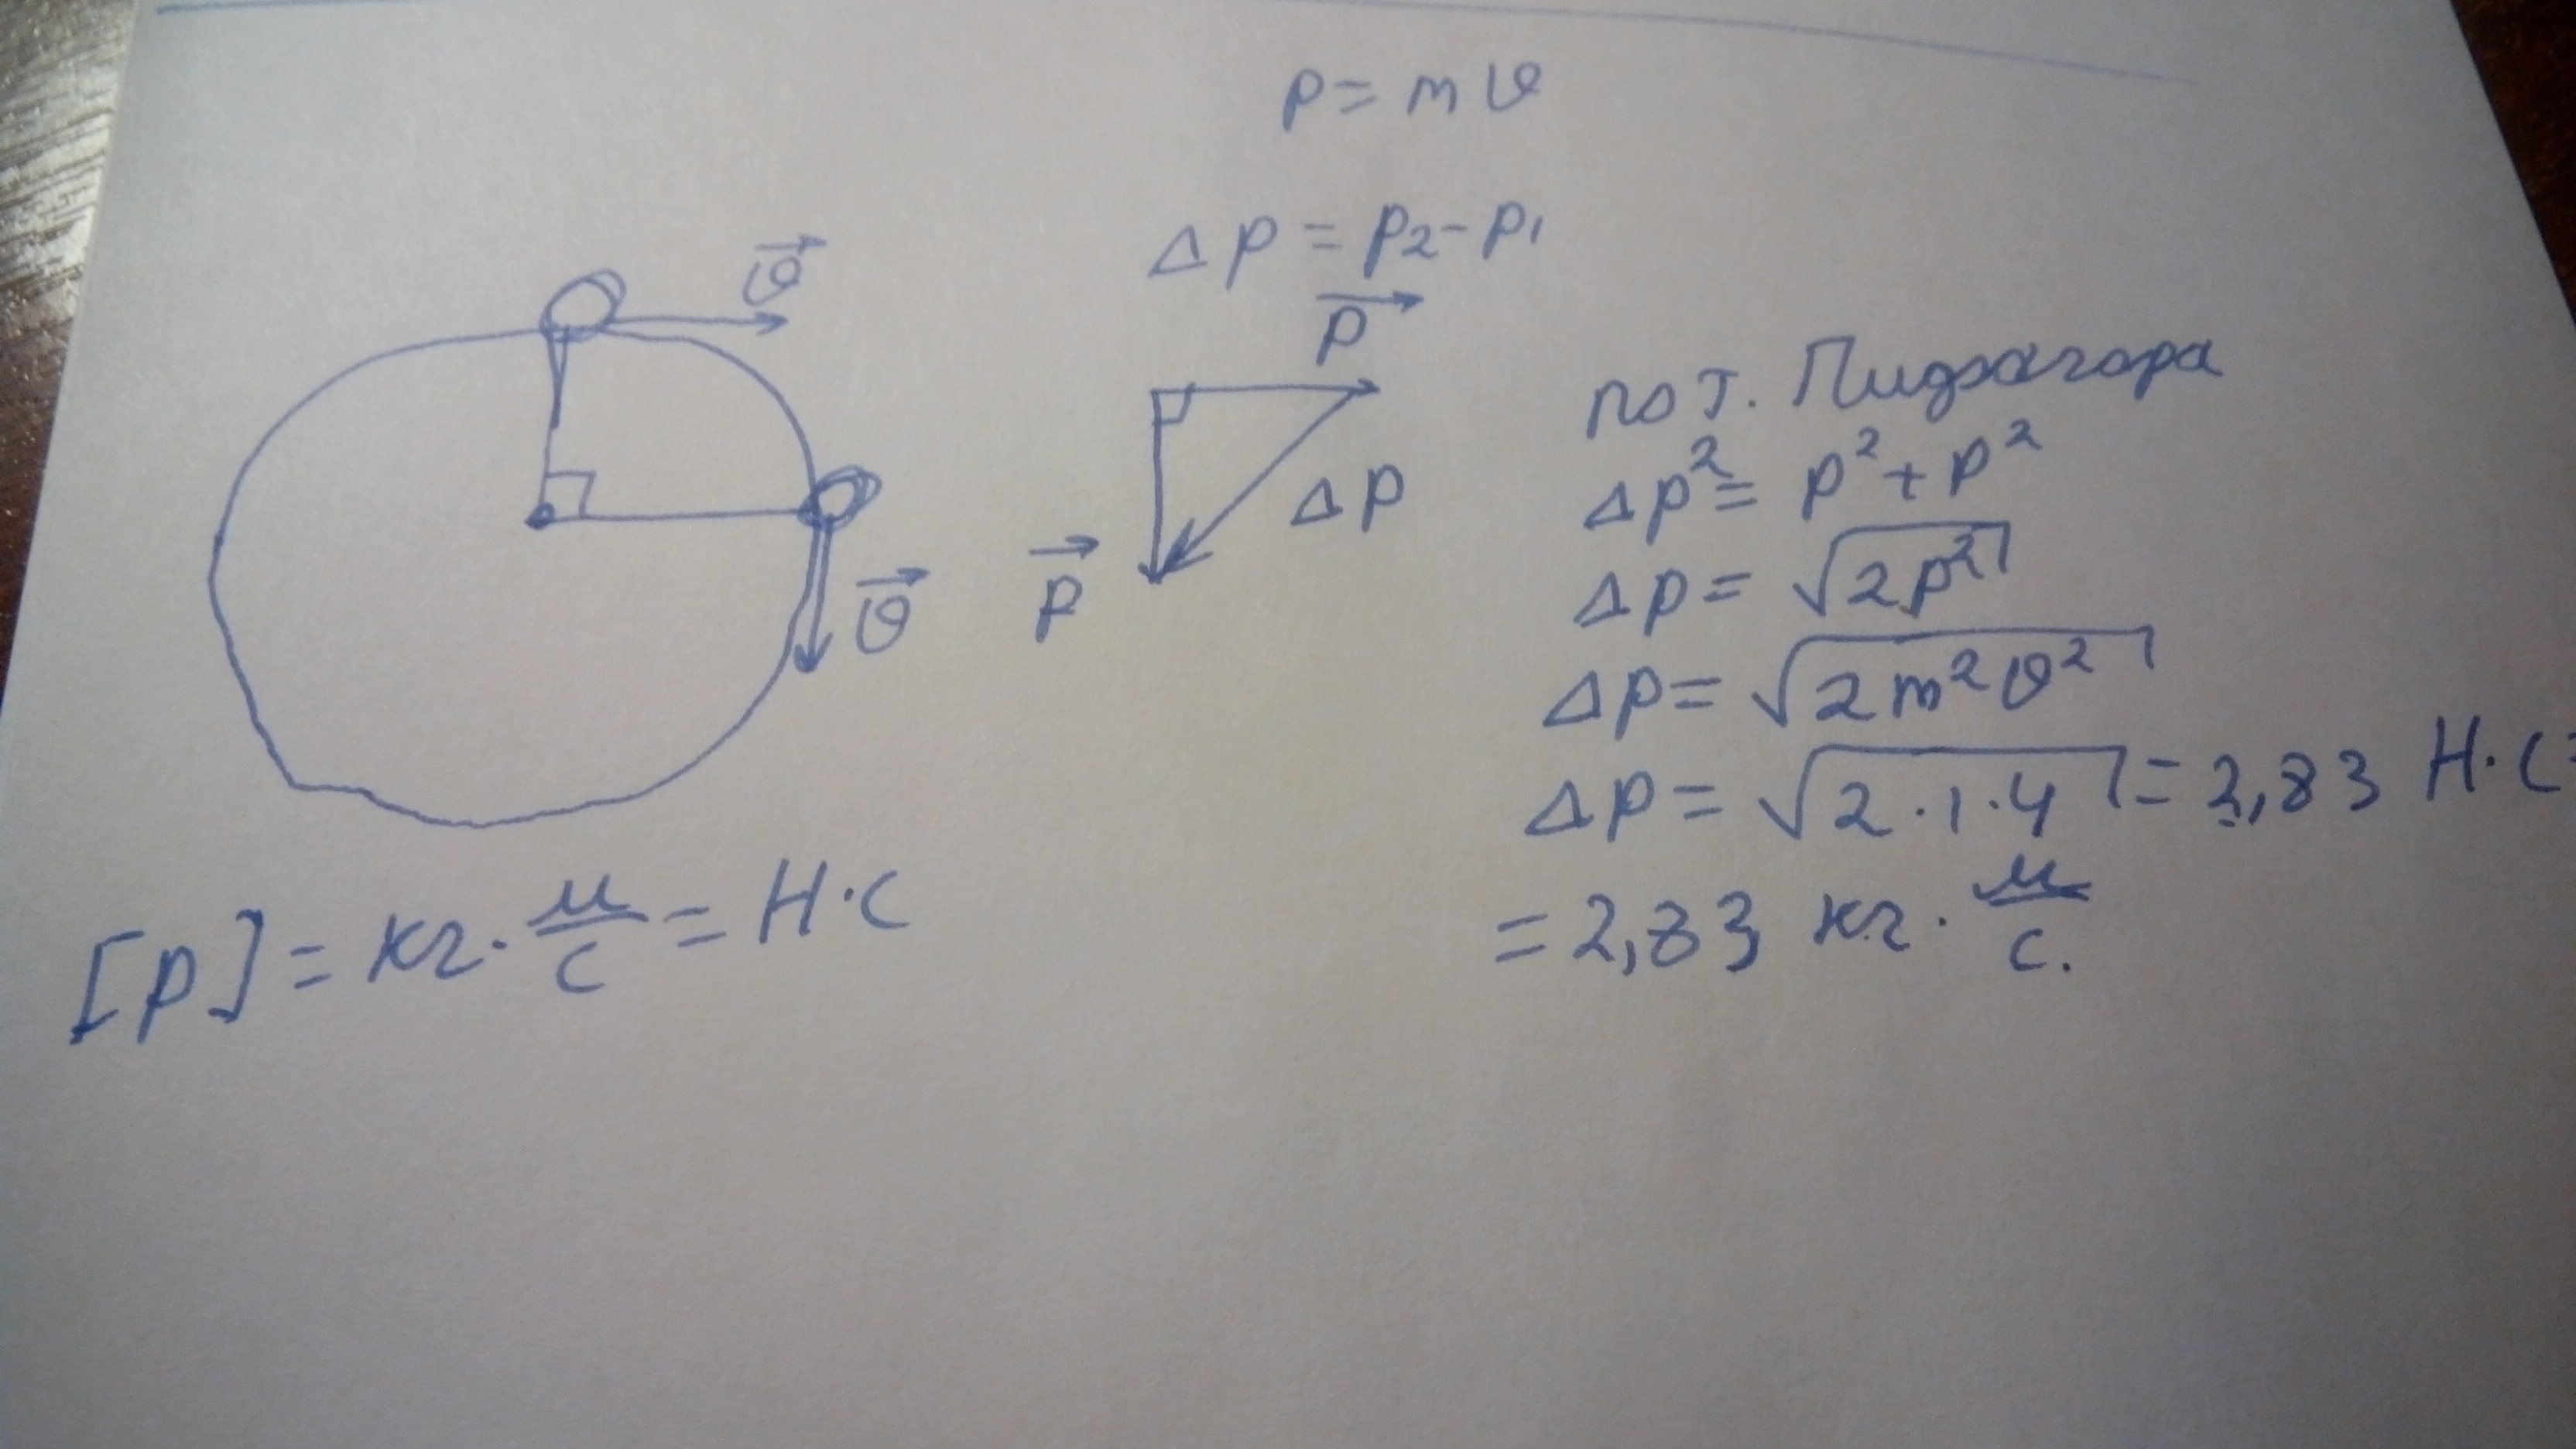 p = mυ
Δp = p₂ - p₁
υ⃗
p⃗
Δp
p⃗
υ⃗
по т. Пифагора
Δp² = p² + p²
Δp = √2p²
Δp = √2m²υ²
Δp = √2·1·4 = 2,83 Н·с =
= 2,83 кг · м/с.
[p] = кг · м/с = Н·с